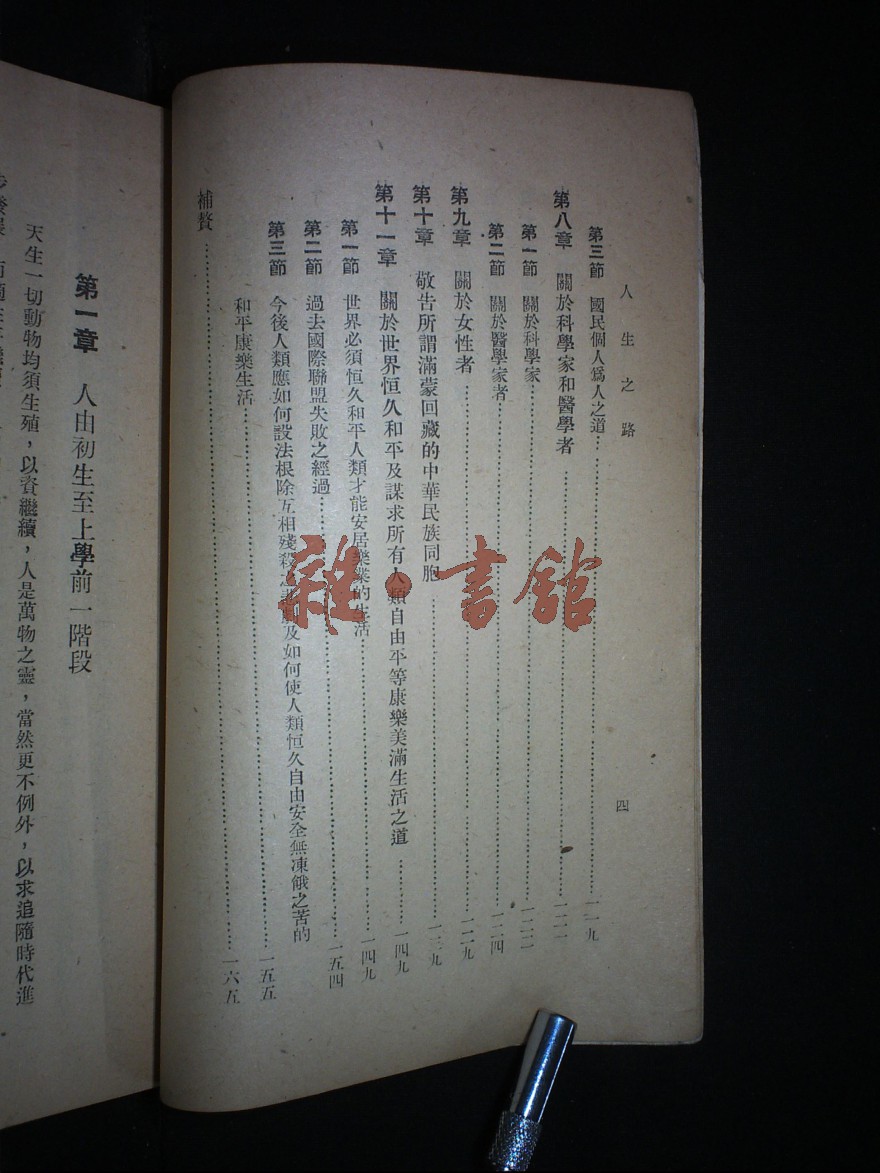 人生之路
四
第三節 國民個人爲人之道 一一九
第八章 關於科學家和醫學者 一二二
第一節 關於科學家 一二二
第二節 關於醫學家者 一二四
第九章 關於女性者 一二九
第十章 敬告所謂滿蒙回藏的中華民族同胞 一三九
第十一章 關於世界恒久和平及謀求所有人類自由平等康樂美滿生活之道 一四九
第一節 世界必須恒久和平人類才能安居樂業的生活 一四九
第二節 過去國際聯盟失敗之經過 一五四
第三節 今後人類應如何設法根除互相殘殺之悲劇及如何使人類恒久自由安全無凍餓之苦的
和平康樂生活 一五五
補贅 一六五
雜·書館
第一章 人由初生至上學前一階段
天生一切動物均須生殖，以資繼續，人是萬物之靈，當然更不例外，以求追隨時代進